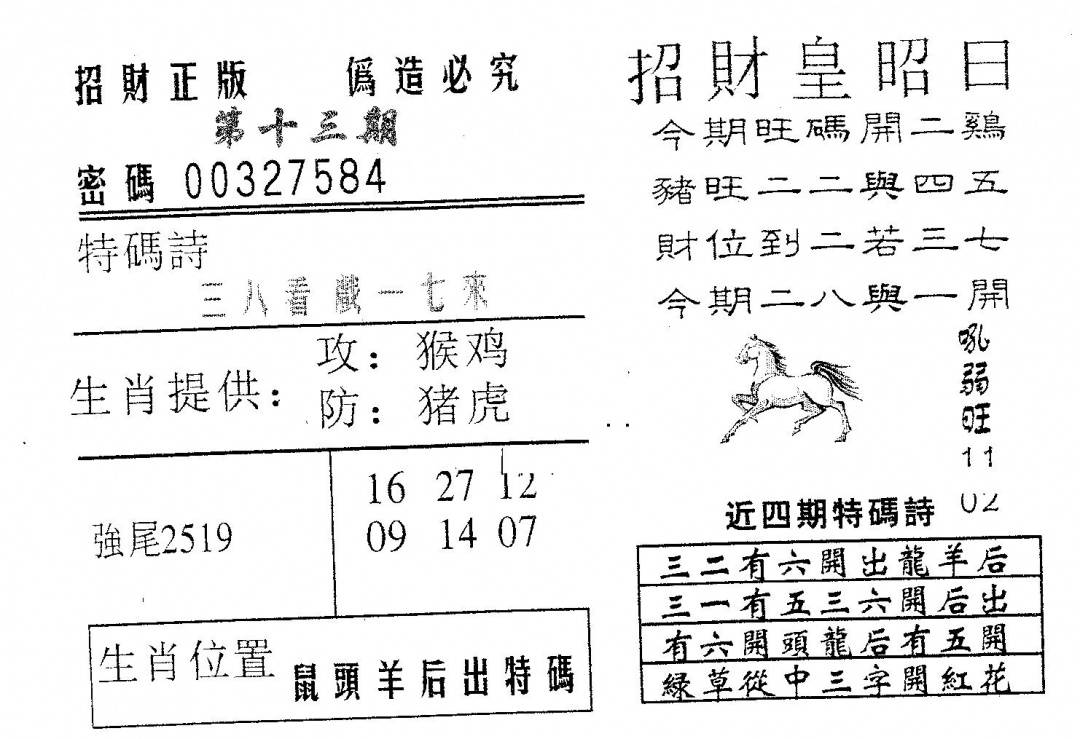 招財正版 偽造必究
第十三期
密碼 00327584
特碼詩
三八看戲一七來
生肖提供：
攻：猴鸡
防：猪虎
強尾2519
16 27 12
09 14 07
生肖位置 鼠頭羊后出特碼
招財皇昭日
今期旺碼開二鷄
豬旺二二與四五
財位到二若三七
今期二八與一開
吼弱旺11
02
近四期特碼詩
三二有六開出龍羊后
三一有五三六開后出
有六開頭龍后有五開
綠草從中三字開紅花